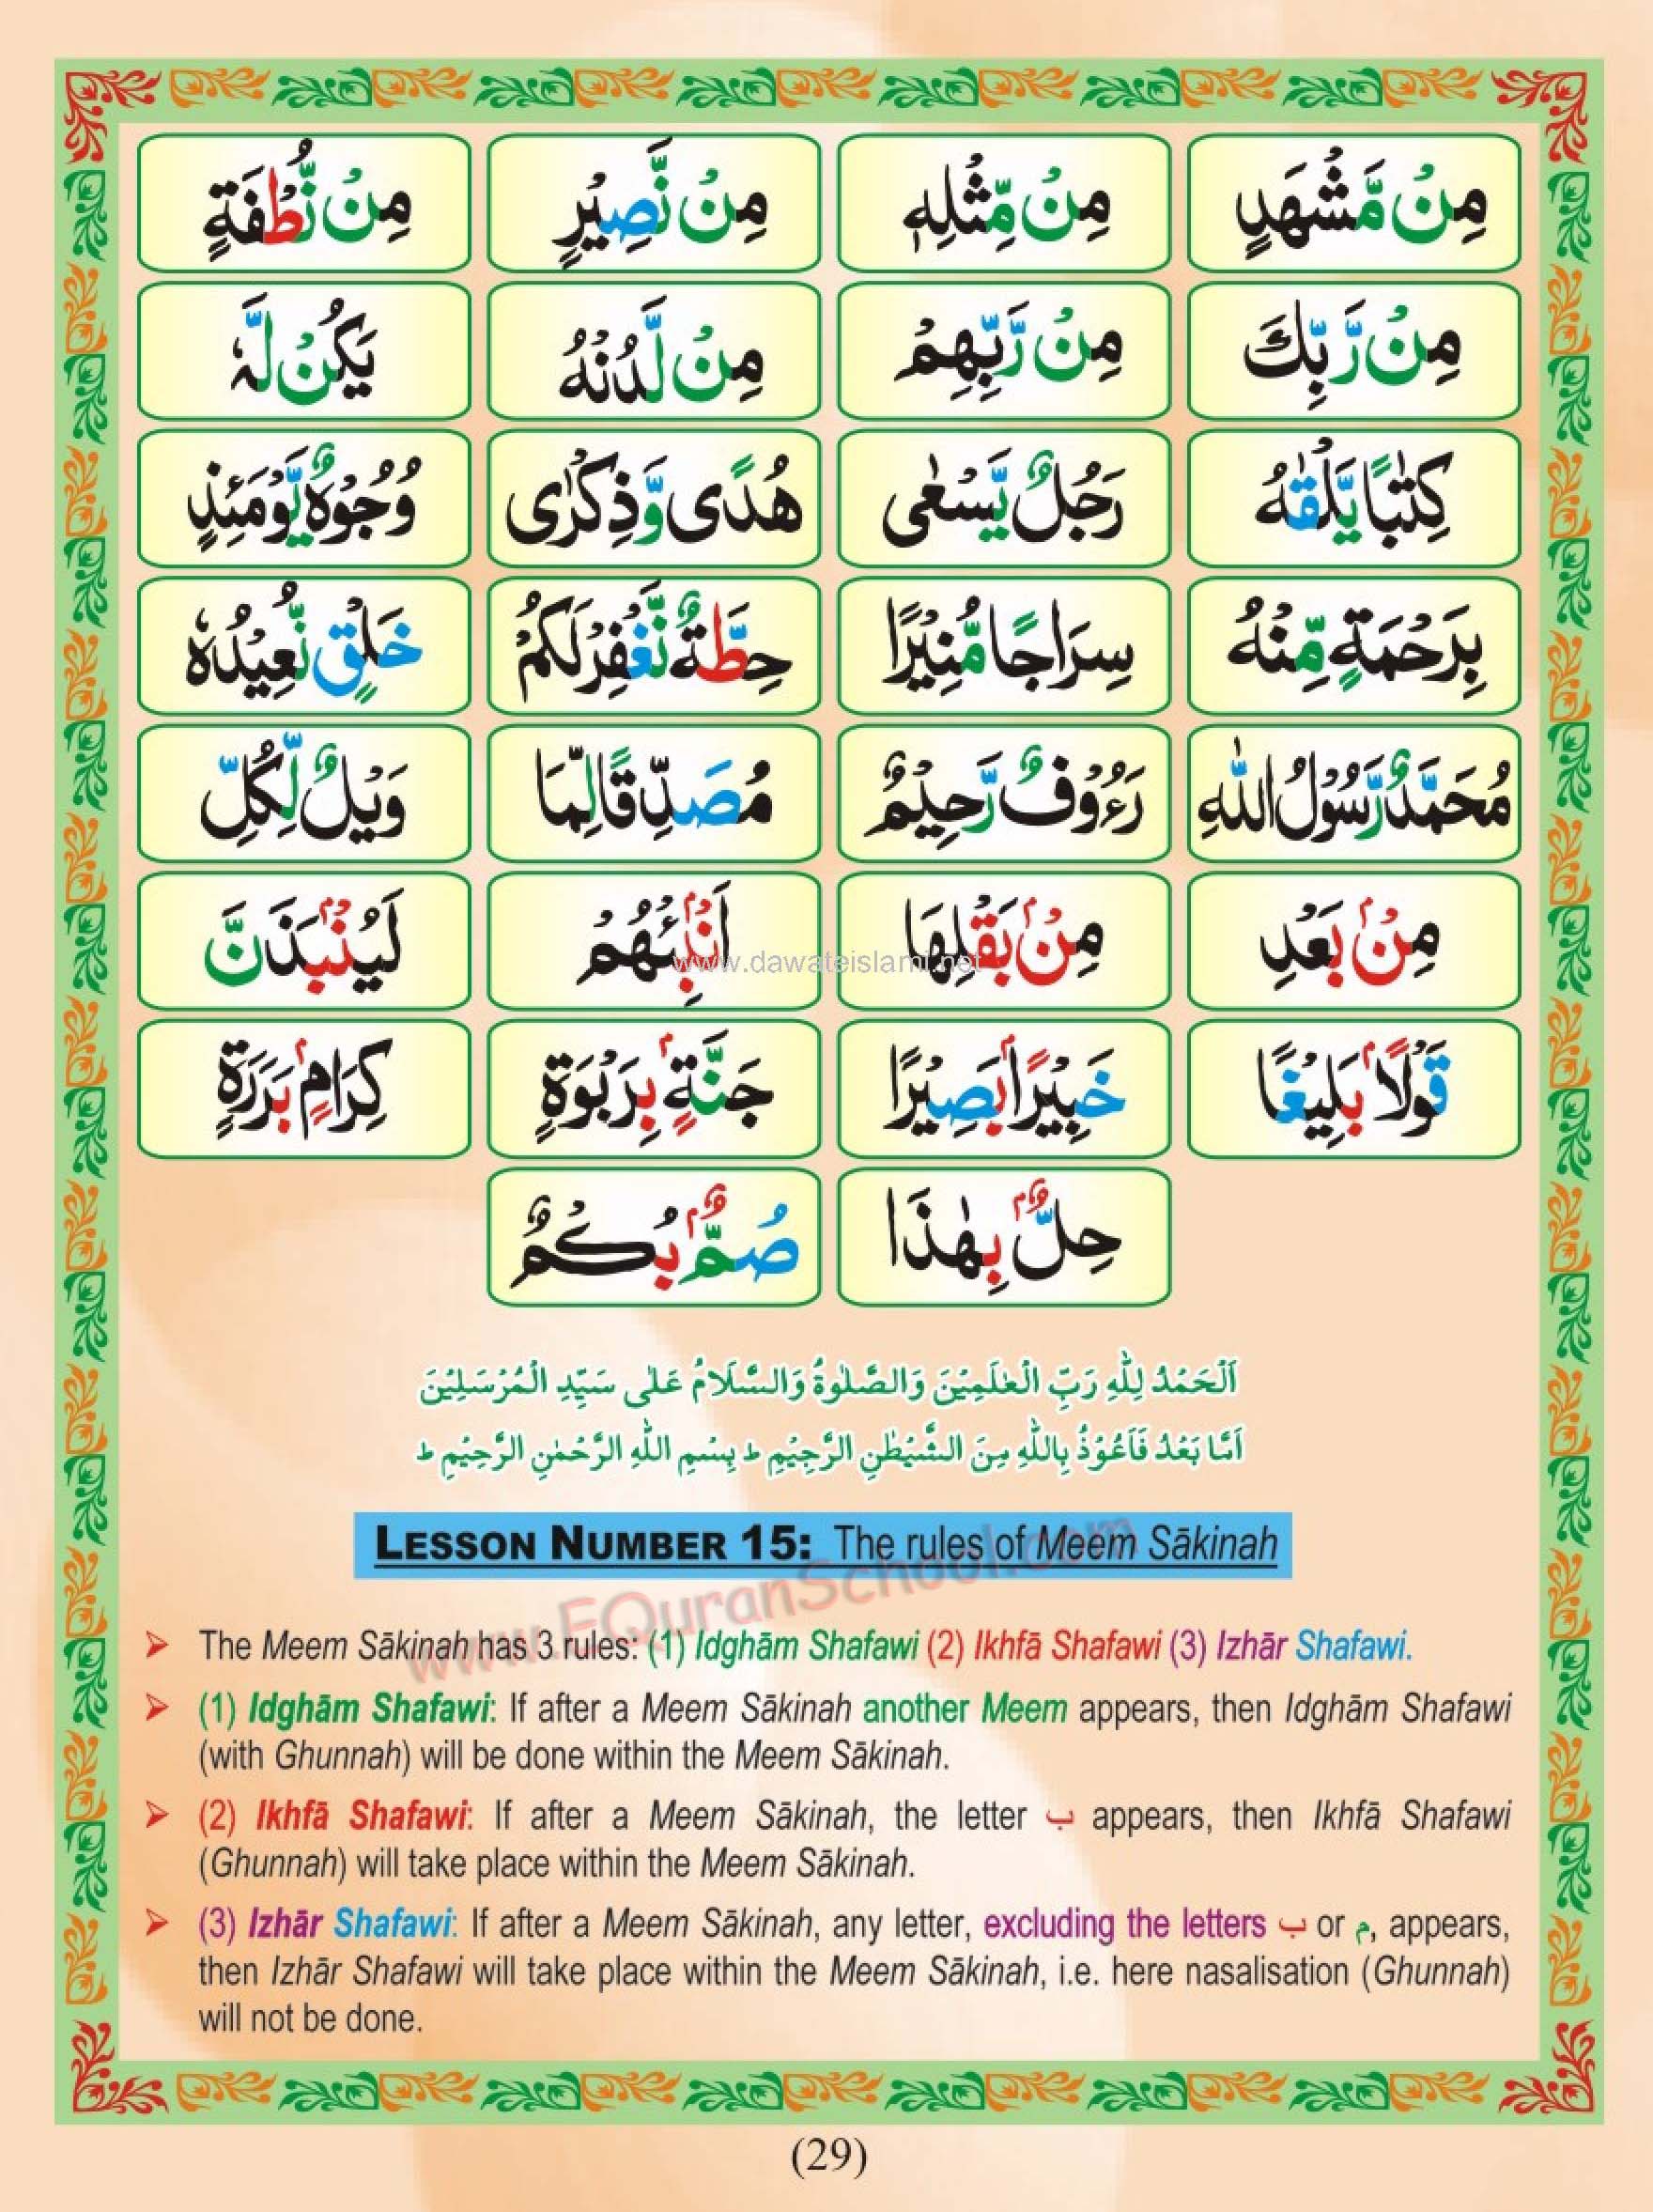 مِنْ مَّشْهَدِ مِنْ مِّثْلِهٖ مِنْ نَّصِيْرٍ مِنْ نُّطْفَةٍ
مِنْ رَّبِّكَ مِنْ رَّبِّهِمْ مِنْ لَّدُنْهُ يَكُنْ لَّهٗ
كِتٰبًا يَّلْقٰهُ رَجُلٌ يَّسْعٰى هُدًى وَّذِكْرٰى وُجُوْهٌ يَّوْمَئِذٍ
بِرَحْمَةٍ مِّنْهُ سِرَاجًا مُّنِيْرًا حِطَّةٌ نَّغْفِرْ لَكُمْ خَلْقٍ نُّعِيْدُهٗ
مُحَمَّدٌ رَّسُوْلُ اللّٰهِ رَءُوْفٌ رَّحِيْمٌ مُصَدِّقًا لِّمَا وَيْلٌ لِّكُلِّ
مِنْۢ بَعْدِ مِنْۢ بَقْلِهَا اَنْۢبِئْهُمْ لَيُنْۢبَذَنَّ
www.dawateislami.net
قَوْلًاۢ بَلِيْغًا خَبِيْرًاۢ بَصِيْرًا جَنَّةٍۢ بِرَبْوَةٍ كِرَامٍۢ بَرَرَةٍ
حِلٌّۢ بِهٰذَا صُمٌّۢ بُكْمٌ
اَلْحَمْدُ لِلّٰهِ رَبِّ الْعٰلَمِيْنَ وَالصَّلٰوةُ وَالسَّلَامُ عَلٰى سَيِّدِ الْمُرْسَلِيْنَ
اَمَّا بَعْدُ فَاَعُوْذُ بِاللّٰهِ مِنَ الشَّيْطٰنِ الرَّجِيْمِ ط بِسْمِ اللّٰهِ الرَّحْمٰنِ الرَّحِيْمِ ط
LESSON NUMBER 15: The rules of Meem Sākinah
www.EQuranSchool.com
➢ The Meem Sākinah has 3 rules: (1) Idghām Shafawi (2) Ikhfā Shafawi (3) Izhār Shafawi.
➢ (1) Idghām Shafawi: If after a Meem Sākinah another Meem appears, then Idghām Shafawi
(with Ghunnah) will be done within the Meem Sākinah.
➢ (2) Ikhfā Shafawi: If after a Meem Sākinah, the letter ب appears, then Ikhfā Shafawi
(Ghunnah) will take place within the Meem Sākinah.
➢ (3) Izhār Shafawi: If after a Meem Sākinah, any letter, excluding the letters ب or م, appears,
then Izhār Shafawi will take place within the Meem Sākinah, i.e. here nasalisation (Ghunnah)
will not be done.
(29)